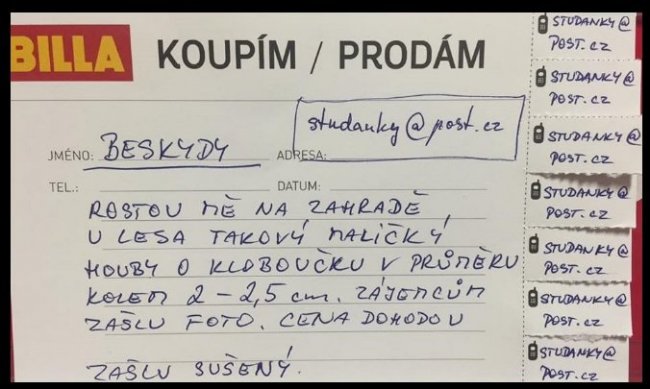 BILLA KOUPÍM / PRODÁM
studanky@post.cz
JMÉNO: BESKYDY ADRESA:
TEL.: DATUM:
ROSTOU MĚ NA ZAHRADĚ
U LESA TAKOVÝ MALIČKÝ
HOUBY O KLOBOUČKU V PRŮMĚRU
KOLEM 2-2,5 cm. ZÁJEMCŮM
ZAŠLU FOTO. CENA DOHODOU
ZAŠLU SUŠENÝ.
STUDANKY@
POST.CZ
STUDANKY@
POST.CZ
STUDANKY@
POST.CZ
STUDANKY@
POST.CZ
STUDANKY@
POST.CZ
STUDANKY@
POST.CZ
STUDANKY@
POST.CZ